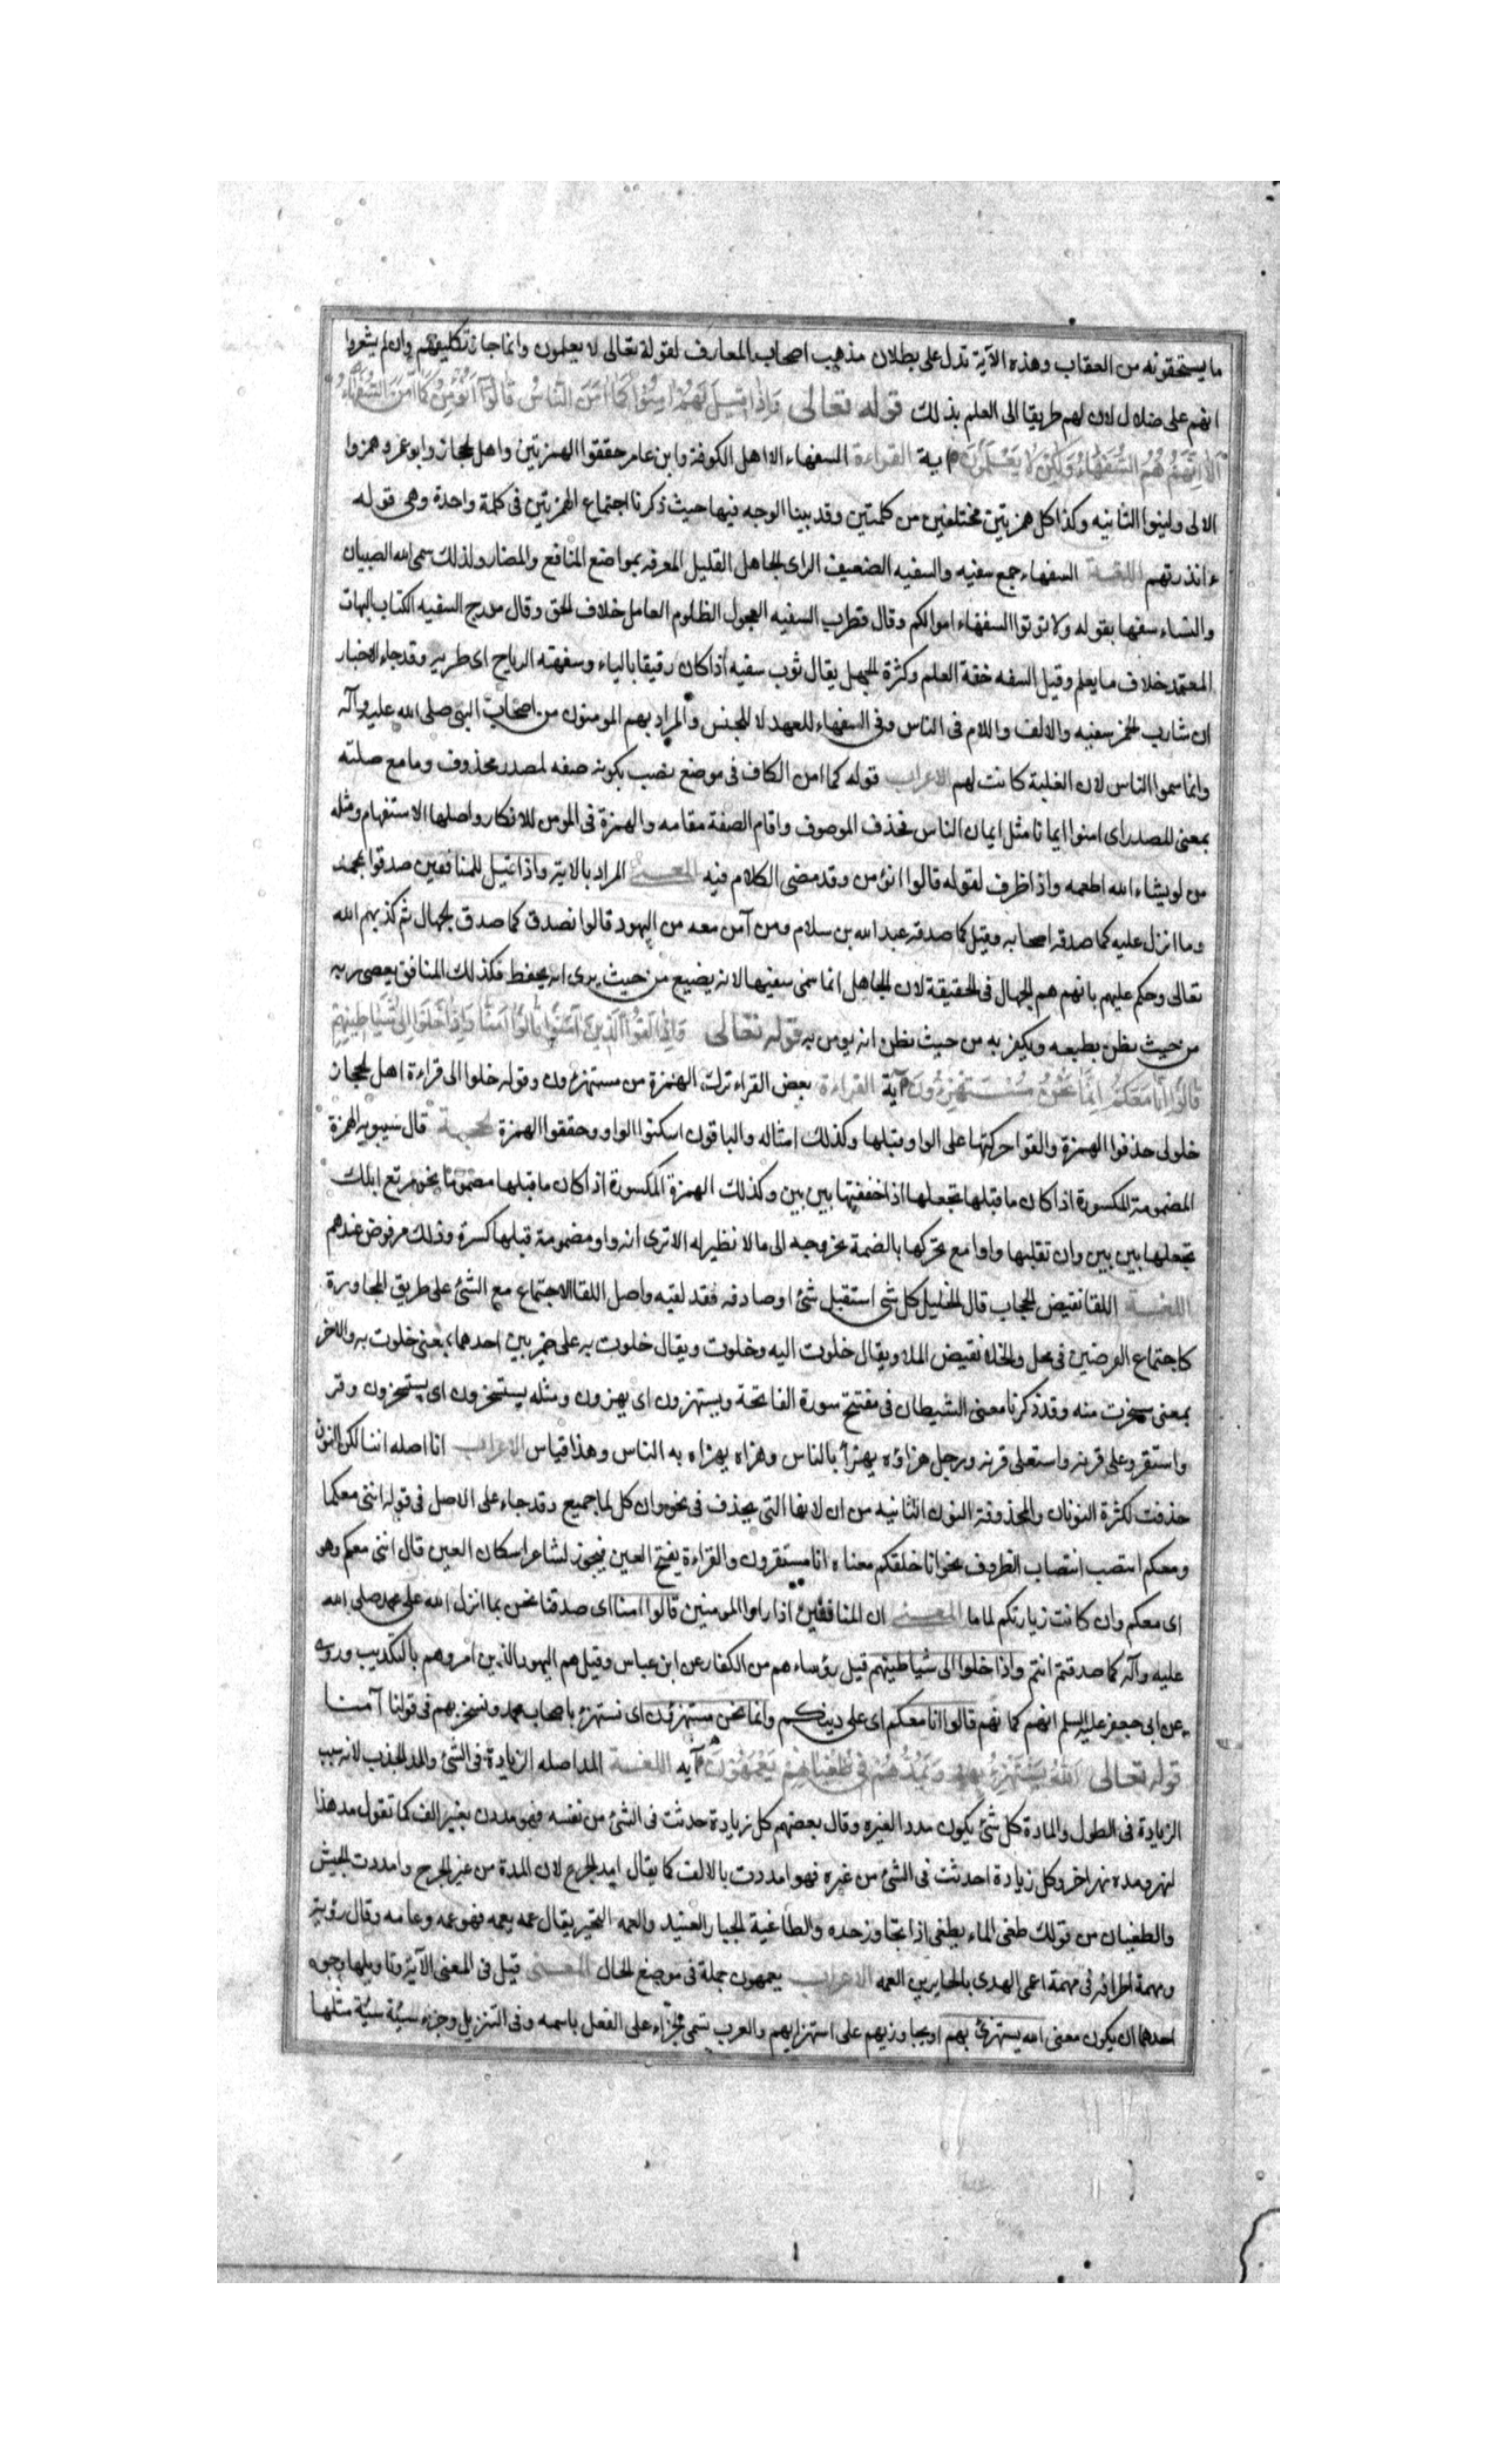 ما يستحقونه من العقاب وهذه الآية تدل على بطلان مذهب اصحاب المعارف لقولة تعالى لا يعلمون وانما جاز تكليفهم وان لم يشعروا
انهم على ضلال لان لهم طريقا الى العلم بذلك قوله تعالى وَاِذَا قِيلَ لَهُمْ اٰمِنُوا كَمَا اٰمَنَ النَّاسُ قَالُوٓا اَنُؤْمِنُ كَمَا اٰمَنَ السُّفَهَاءُ
اَلَا اِنَّهُمْ هُمُ السُّفَهَاءُ وَلٰكِنْ لَا يَعْلَمُونَ آية القراءة السفهاء الا اهل الكوفة وابن عامر حققوا الهمزتين واهل الحجاز وابو عمرو همزوا
الاولى ولينوا الثانيه وكذا كل همزتين مختلفتين من كلمتين وقد بينا الوجه فيها حيث ذكرنا اجتماع الهمزتين فى كلمة واحدة وهى قوله
ءانذرتهم اللغـــة السفهاء جمع سفيه والسفيه الضعيف الراى الجاهل القليل المعرفه بمواضع المنافع والمضار ولذلك سمى الله الصبيان
والنساء سفها بقوله ولا تؤتوا السفهاء اموالكم وقال قطرب السفيه العجول الظلوم العامل خلاف الحق وقال مورج السفيه الكتاب البهات
المعتمد خلاف ما يعلم وقيل السفه خفة العلم وكثرة الجهل يقال ثوب سفيه اذا كان رقيقا باليا وسفهته الرياح اى طريره وقد جاء الاخبار
ان شارب الخمر سفيه والالف واللام فى الناس وفى السفهاء للعهد لا للجنس والمراد بهم المومنون من اصحاب النبى صلى الله عليه وآله
وانما سموا الناس لان الغلبة كانت لهم الاعراب قوله كما امن الكاف فى موضع نصب بكونه صفه لمصدر محذوف وما مع صلته
بمعنى المصدر اى امنوا ايمانا مثل ايمان الناس فحذف الموصوف واقام الصفة مقامه والهمزة فى انومن للانكار واصلها الاستفهام ومثله
من لو يشاء الله اطعمه واذا ظرف لقوله قالوا انؤمن وقد مضى الكلام فيه المعـــنى المراد بالاية واذا قيل للمنافقين صدقوا بمحمد
وما انزل عليه كما صدقه اصحابه وقيل كما صدقه عبد الله بن سلام ومن آمن معه من اليهود قالوا نصدق كما صدق الجهال ثم كذبهم الله
تعالى وحكم عليهم بانهم هم الجهال فى الحقيقة لان الجاهل انما سمى سفيها لانه يضيع من حيث يرى انه يحفظ فكذلك المنافق يعصى ربه
من حيث يظن يطيعه ويكفر به من حيث يظن انه يومن به قوله تعالى وَاِذَا لَقُوا الَّذِينَ آمَنُوا قَالُوا آمَنَّا وَاِذَا خَلَوْا اِلٰى شَيَاطِينِهِمْ
قَالُوا اِنَّا مَعَكُمْ اِنَّمَا نَحْنُ مُسْتَهْزِءُونَ آية القراءة بعض القراء ترك الهمزة من مستهزءون وقوله خلوا الى قراءة اهل الحجاز
خلولى حذفوا الهمزة والقوا حركتها على الواو قبلها وكذلك امثاله والباقون اسكنوا الواو وحققوا الهمزة الحجـــة قال سيبويه الهمزة
المضمومة المكسورة اذا كان ما قبلها تجعلها اذا خففتها بين بين وكذلك الهمزة المكسورة اذا كان ما قبلها مضموما نحو مرتع ابلك
تجعلها بين بين وان تقلبها واوا مع تحركها بالضمة بخروجه الى مالا نظير له الا ترى انه واو مضمومة قبلها كسرة وذلك مرفوض عندهم
اللغـــة اللقا نقيض الحجاب قال الخليل كل شى استقبل شئ او صادفه فقد لقيه واصل اللقا الاجتماع مع الشئ على طريق المجاورة
كاجتماع العرضين فى محل والخلا نقيض الملا ويقال خلوت اليه وخلوت ويقال خلوت به على ضربين احدهما بمعنى خلوت به والاخر
بمعنى سخرت منه وقد ذكرنا معنى الشيطان فى مفتتح سورة الفاتحة ويستهزون اى يهزون ومثله يستسخرون اى يسخرون وقر
واستقر وعلى قرنه واستعلى قرنه ورجل هزاؤه يهزأ بالناس وهزاه يهزاه به الناس وهذا قياس الاعراب انا اصله اننا لكن النون
حذفت لكثرة النونات والمحذوفة النون الثانيه من ان لانها التى يحذف فى نحو وان كل لما جميع وقد جاء على الاصل فى قوله اننى معكما
ومعكم انتصب انتصاب الظروف نحو انا خلفكم معناه انا مستقرون والقراءة بفتح العين فيجوز لشاعر اسكان العين قال اننى معكم وهو
اى معكم وان كانت زيارتكم لماما المعـــنى ان المنافقين اذا راوا المومنين قالوا امنا اى صدقنا نحن بما انزل الله على محمد صلى الله
عليه وآله كما صدقتم انتم واذا خلوا الى شياطينهم قيل رؤساءهم من الكفار عن ابن عباس وقيل هم اليهود الذين امروهم بالتكذيب وروى
عن ابى جعفر عليه السلم انهم كهانهم قالوا انا معكم اى على دينكم وانما نحن مستهزؤن اى نستهزئ باصحاب محمد ونسخر بهم فى قولنا آمنا
قوله تعالى اَللّٰهُ يَسْتَهْزِئُ بِهِمْ وَيَمُدُّهُمْ فِي طُغْيَانِهِمْ يَعْمَهُونَ آيه اللغـــة المد اصله الزيادة فى الشئ والمد الجذب لانه سبب
الزيادة فى الطول والمادة كل شئ يكون مددا لغيره وقال بعضهم كل زيادة حدثت فى الشئ من نفسه فهو مددت بغير الف كما تقول مد هذا
لنهر ومده نهر اخر وكل زيادة احدثت فى الشئ من غيره فهو امددت بالالف كما يقال امد الجرح لان المدة من غير الجرح وامددت الجيش
والطغيان من قولك طغى الماء يطغى اذا تجاوز حده والطاغية الجبار العنيد والعمه التحير يقال عمه يعمه فهو عمه وعامه وقال رؤبة
ومهمة اطرافه فى مهمة اعمى الهدى بالحايرين العمه الاعراب يعمهون جملة فى موضع الحال المعـــنى قيل فى المعنى الآية وتاويلها وجوه
احدهما ان يكون معنى الله يستهزئ بهم او يجازيهم على استهزايهم والعرب تسمى الجزاء على الفعل باسمه وفى التنزيل وجزء سيئة سيئة مثلها
١